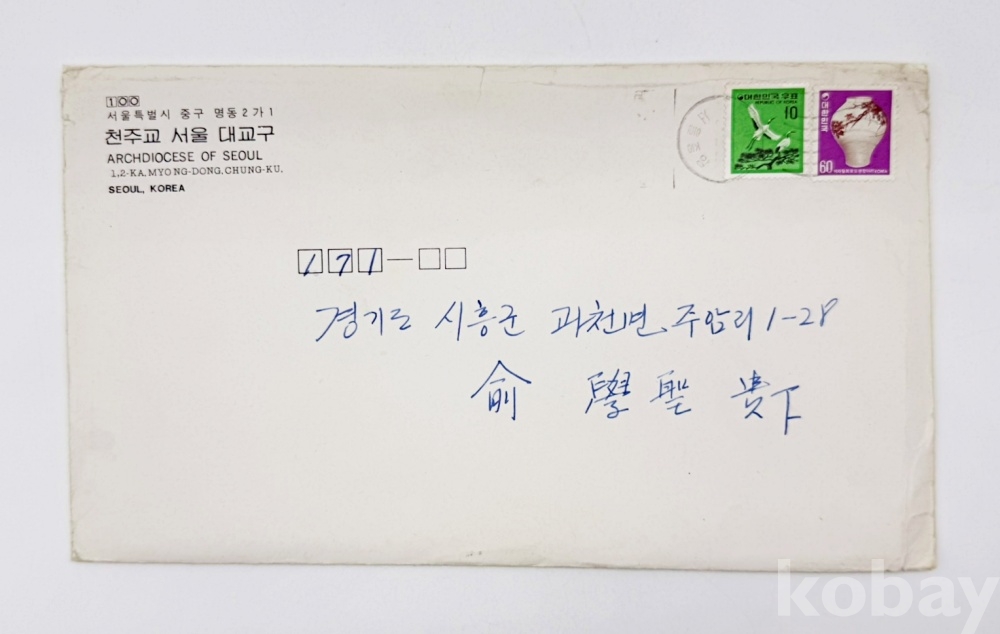 100
서울특별시 중구 명동2가1
천주교 서울 대교구
ARCHDIOCESE OF SEOUL
1,2-KA, MYONG-DONG, CHUNG-KU,
SEOUL, KOREA
대한민국 우표
REPUBLIC OF KOREA
10
대한민국
60
171-
경기도 시흥군 과천면 주암리 1-28
俞 學聖 貴下
kobay